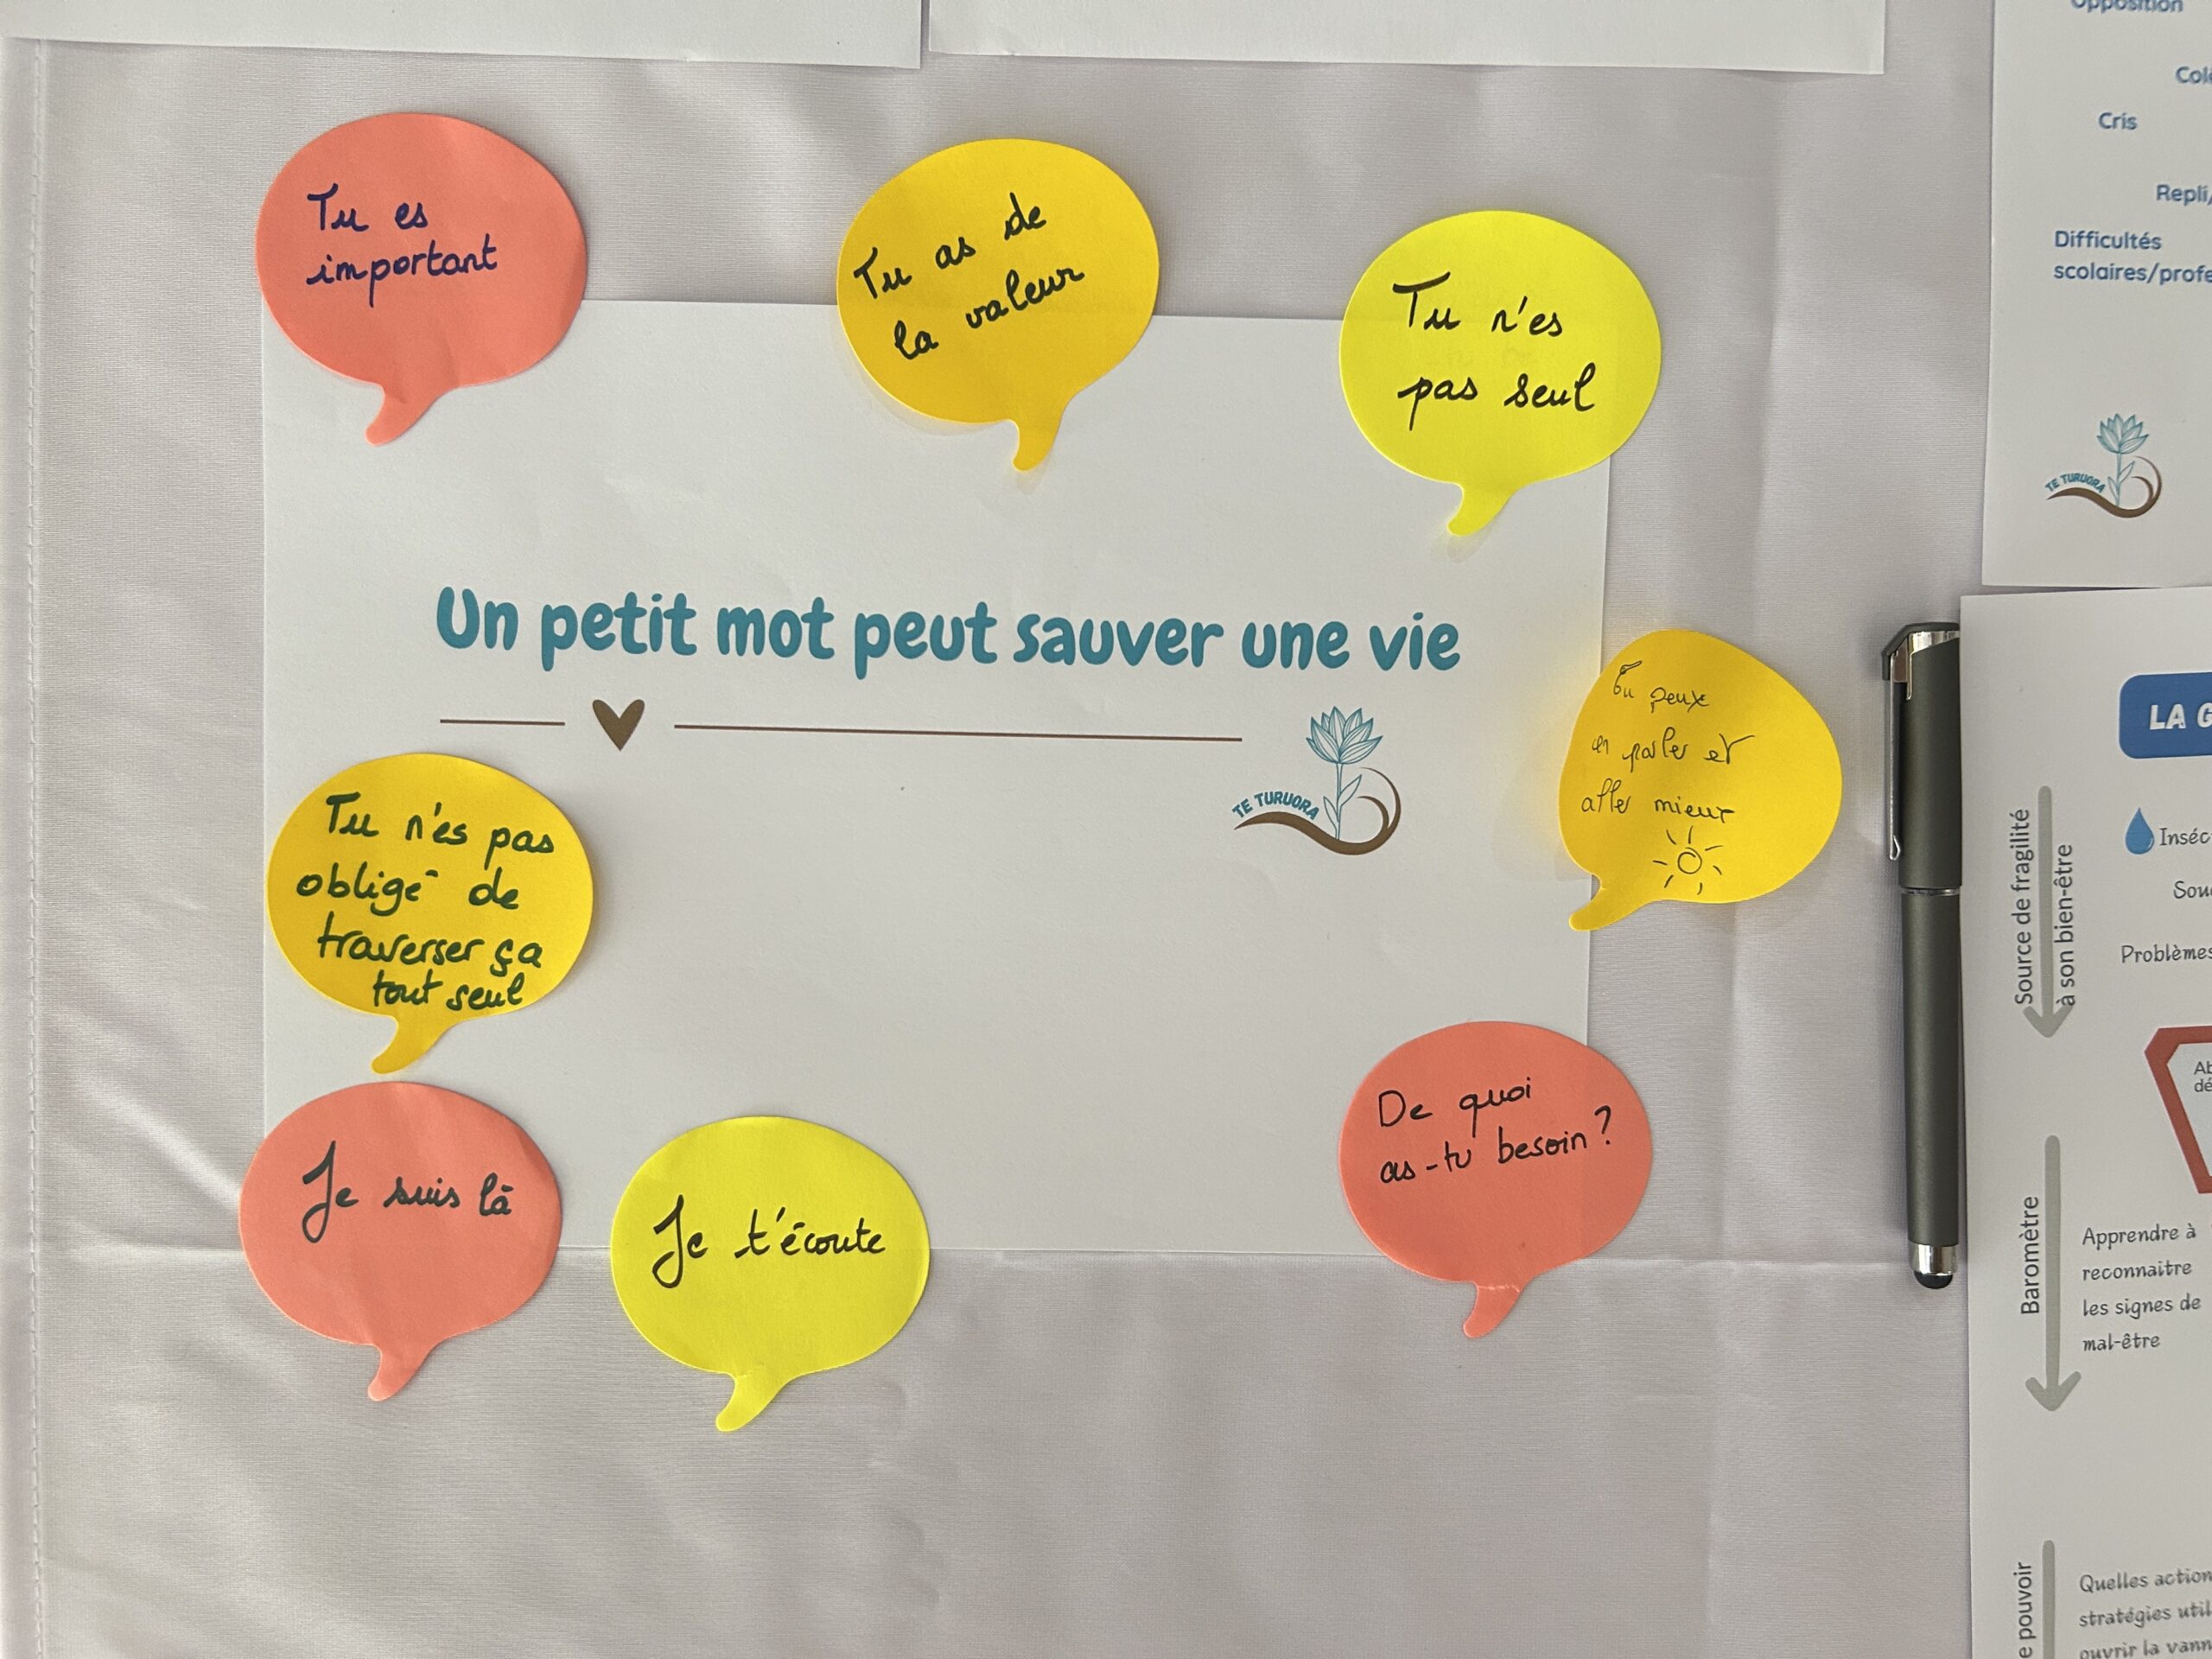 Tu es
important
Tu as de
la valeur
Tu n'es
pas seul
Un petit mot peut sauver une vie
TE TURUORA
Tu peux
en parler et
aller mieux
Tu n'es pas
obligé de
traverser ça
tout seul
Je suis là
Je t'écoute
De quoi
as-tu besoin ?
Opposition
Cris
Difficultés
scolaires/profe
TE TURUORA
LA G
Source de fragilité
à son bien-être
Problèmes
Baromètre
Apprendre à
reconnaitre
les signes de
mal-être
pouvoir
Quelles action
stratégies util
ouvrir la vann